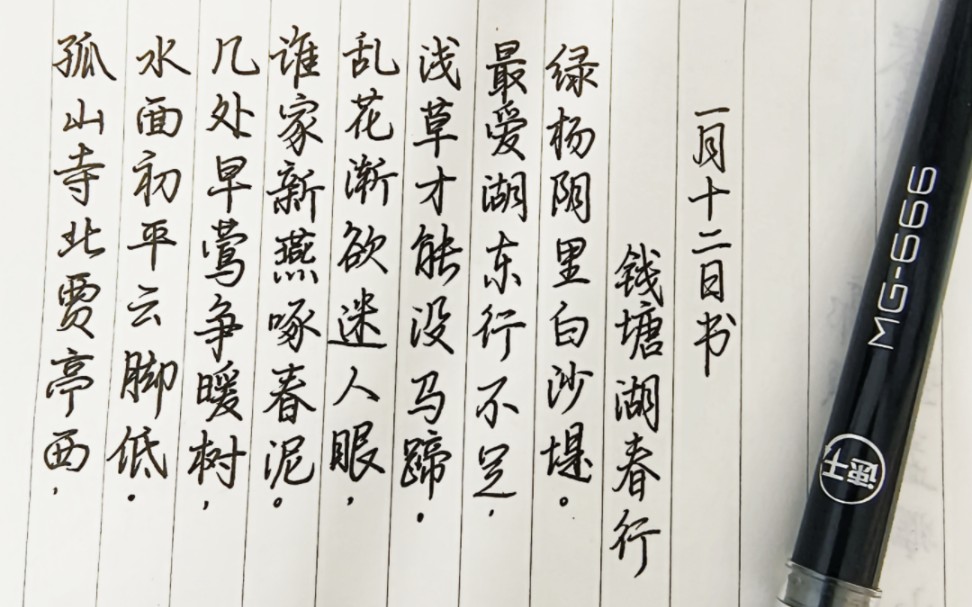 孤山寺北贾亭西，
水面初平云脚低。
几处早莺争暖树，
谁家新燕啄春泥。
乱花渐欲迷人眼，
浅草才能没马蹄。
最爱湖东行不足，
绿杨阴里白沙堤。
钱塘湖春行
一月十二日书
MG-666
速干